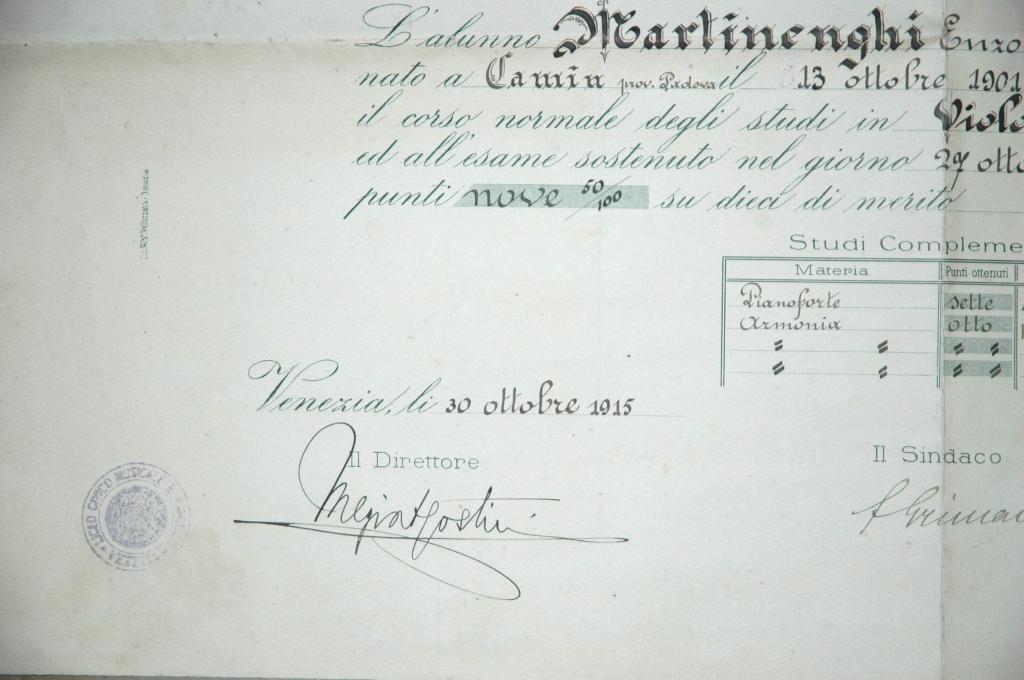 L'alunno Martinenghi Enzo
nato a Camin prov. Padova il 13 ottobre 1901
il corso normale degli studi in Violo
ed all'esame sostenuto nel giorno 27 otto
punti nove 50/100 su dieci di merito
Studi Compleme
Materia Punti ottenuti
Pianoforte sette
Armonia otto
〃 〃 〃 〃
〃 〃 〃 〃
Venezia, li 30 ottobre 1915
Il Direttore
Il Sindaco
LICEO CIVICO MUSICALE